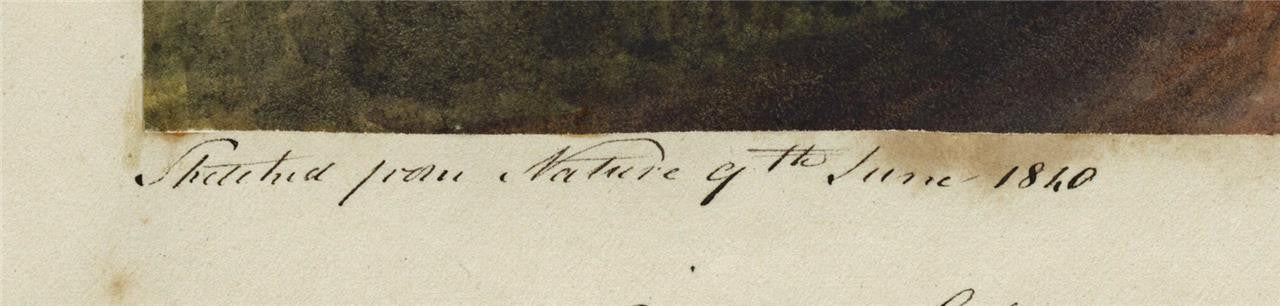 Sketched from Nature 9th June 1840